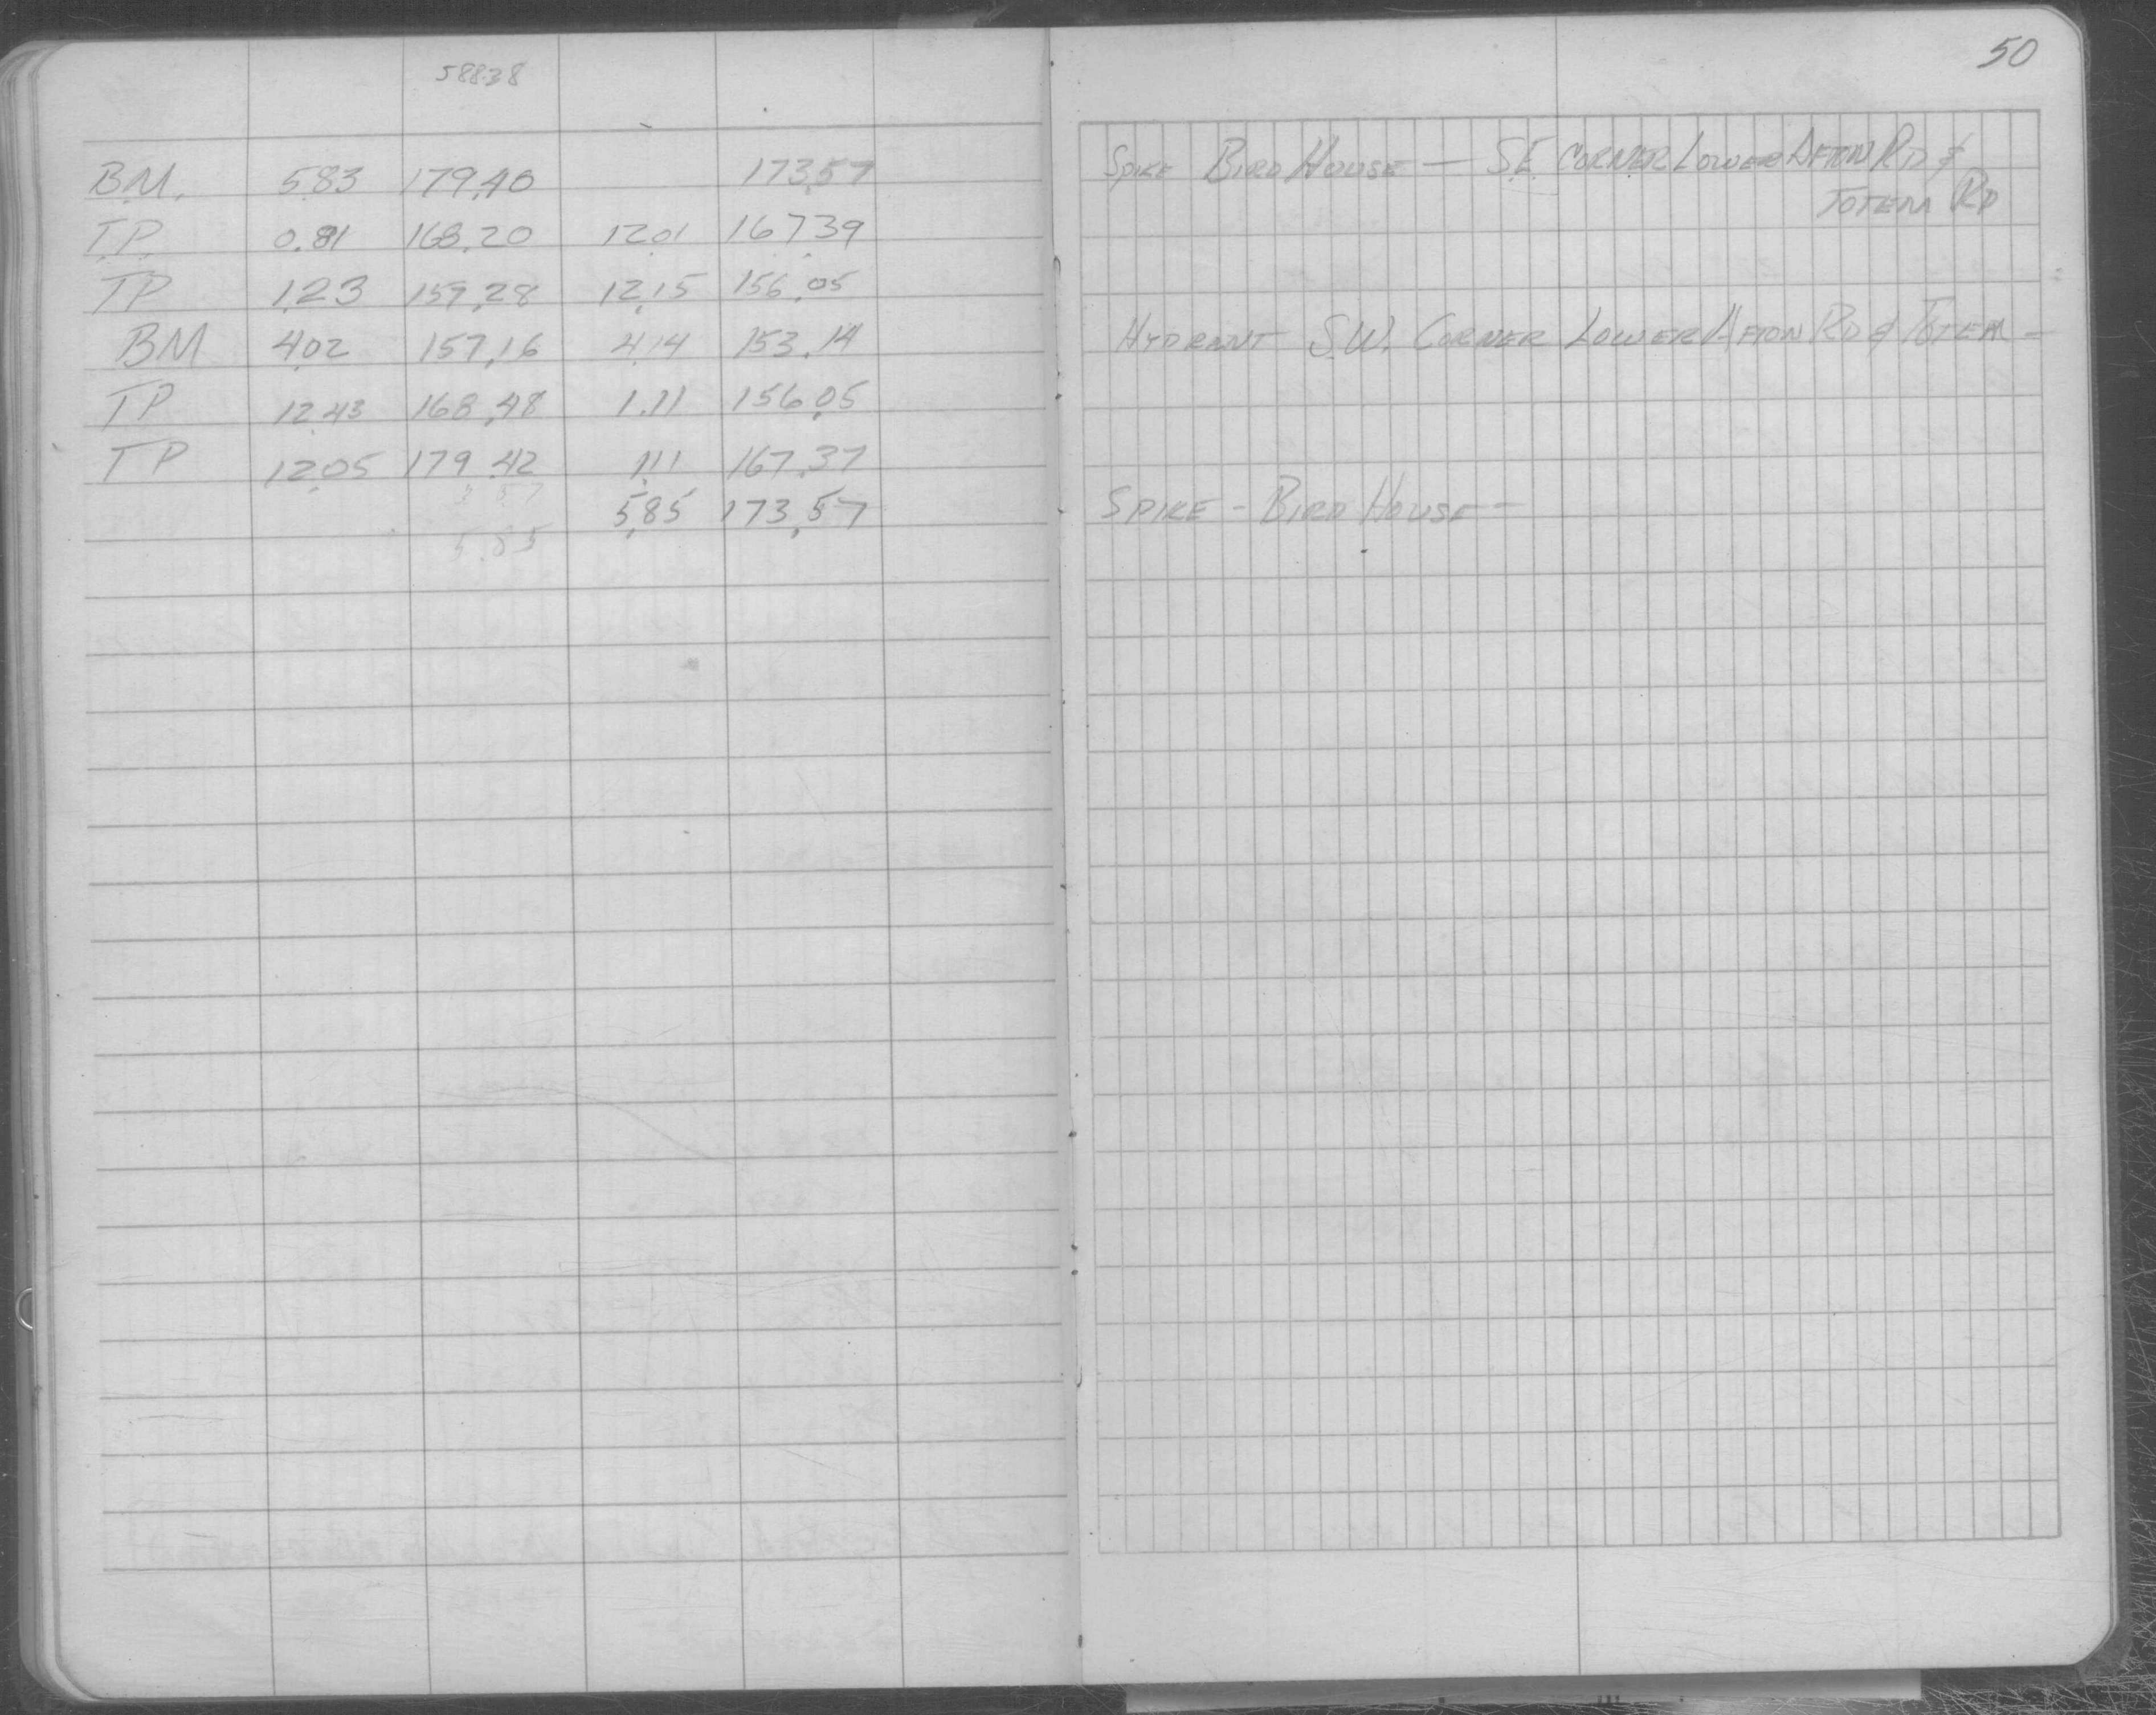 50
58838
BM. 5.83 179.40 173.57 Spike Bird House — S.E. Corner Lower Afton Rd &
Totem Rd
T.P. 0.81 168.20 12.01 167.39
TP 1.23 157.28 12.15 156.05
BM 4.02 157.16 4.14 153.14 Hydrant S.W. Corner Lower Afton Rd & Totem -
TP 12.43 168.48 1.11 156.05
TP 12.05 179.42 1.11 167.37
5.85 173.57 Spike - Bird House -
5.85